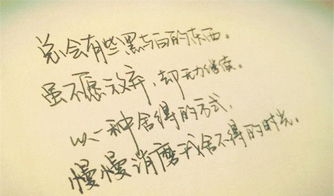 总会有些黑与白的东西。
虽不愿放弃，却无力偿债。
以一种舍得的方式，
慢慢消磨我舍不得的时光。